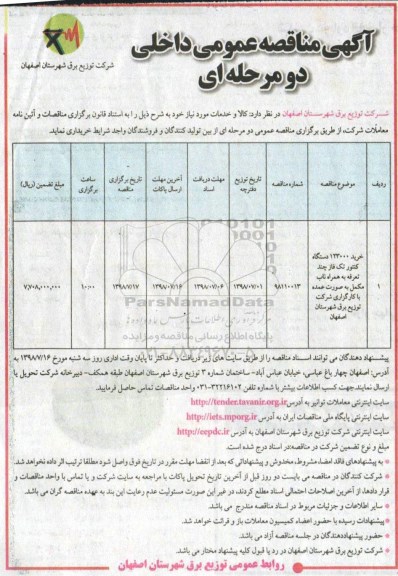 آگهی مناقصه عمومی داخلی
دو مرحله ای
شرکت توزیع برق شهرستان اصفهان
شرکت توزیع برق شهرستان اصفهان در نظر دارد: کالا و خدمات مورد نیاز خود به شرح ذیل را به استناد قانون برگزاری مناقصات و آئین نامه
معاملات شرکت، از طریق برگزاری مناقصه عمومی دو مرحله ای از بین تولید کنندگان و فروشندگان واجد شرایط خریداری نماید.
ردیف
موضوع مناقصه
شماره مناقصه
تاریخ توزیع دفترچه
مهلت دریافت اسناد
آخرین مهلت ارسال پاکات
تاریخ برگزاری مناقصه
ساعت برگزاری
مبلغ تضمین (ریال)
۱
خرید ۱۲۳۰۰۰ دستگاه
کنتور تک فاز چند
تعرفه به همراه تاب
مکمل به صورت عمده
با کارگزاری شرکت
توزیع برق شهرستان
اصفهان
۹۸۱۱۰۰۱۳
۱۳۹۸/۰۷/۰۱
۱۳۹۸/۰۷/۰۶
۱۳۹۸/۰۷/۱۶
۱۳۹۸/۰۷/۱۷
۱۰:۰۰
۷,۷۰۸,۰۰۰,۰۰۰
ParsNamadData
پایگاه اطلاع رسانی مناقصه و مزایده
پیشنهاد دهندگان می توانند اسناد مناقصه را از طریق سایت های زیر دریافت و حداکثر تا پایان وقت اداری روز سه شنبه مورخ ۱۳۹۸/۷/۱۶ به
آدرس: اصفهان چهار باغ عباسی- خیابان عباس آباد- ساختمان شماره ۳ توزیع برق شهرستان اصفهان طبقه همکف- دبیرخانه شرکت تحویل یا
ارسال نمایند. جهت کسب اطلاعات بیشتر با شماره تلفن ۳۲۲۱۶۱۰۲-۰۳۱ واحد مناقصات تماس حاصل فرمایید.
سایت اینترنتی معاملات توانیر به آدرس http://tender.tavanir.org.ir
سایت اینترنتی پایگاه ملی مناقصات ایران به آدرس http://iets.mporg.ir
سایت اینترنتی شرکت توزیع برق شهرستان اصفهان به آدرس http://eepdc.ir
مبلغ و نوع تضمین شرکت در مناقصه: در اسناد درج شده است.
به پیشنهادهای فاقد امضاء، مشروط، مخدوش و پیشنهاداتی که بعد از انقضا مهلت مقرر در تاریخ فوق واصل شود مطلقا ترتیب اثر داده نخواهد شد.
شرکت کنندگان در مناقصه می بایست دو روز قبل از آخرین تاریخ تحویل پاکات با مراجعه به سایت شرکت و یا تماس با واحد مناقصات و
قرار دادها، از آخرین اصلاحات احتمالی اسناد مطلع گردند، در غیر این صورت مسئولیت عدم رعایت این بند به عهده مناقصه گران می باشد.
سایر اطلاعات و جزئیات مربوط در اسناد مناقصه مندرج می باشد.
پیشنهادات رسیده با حضور اعضاء کمیسیون معاملات باز و قرائت خواهد شد.
حضور پیشنهاددهندگان در جلسه مناقصه آزاد می باشد.
شرکت توزیع برق شهرستان اصفهان در رد یا قبول کلیه پیشنهاد مختار می باشد.
روابط عمومی توزیع برق شهرستان اصفهان